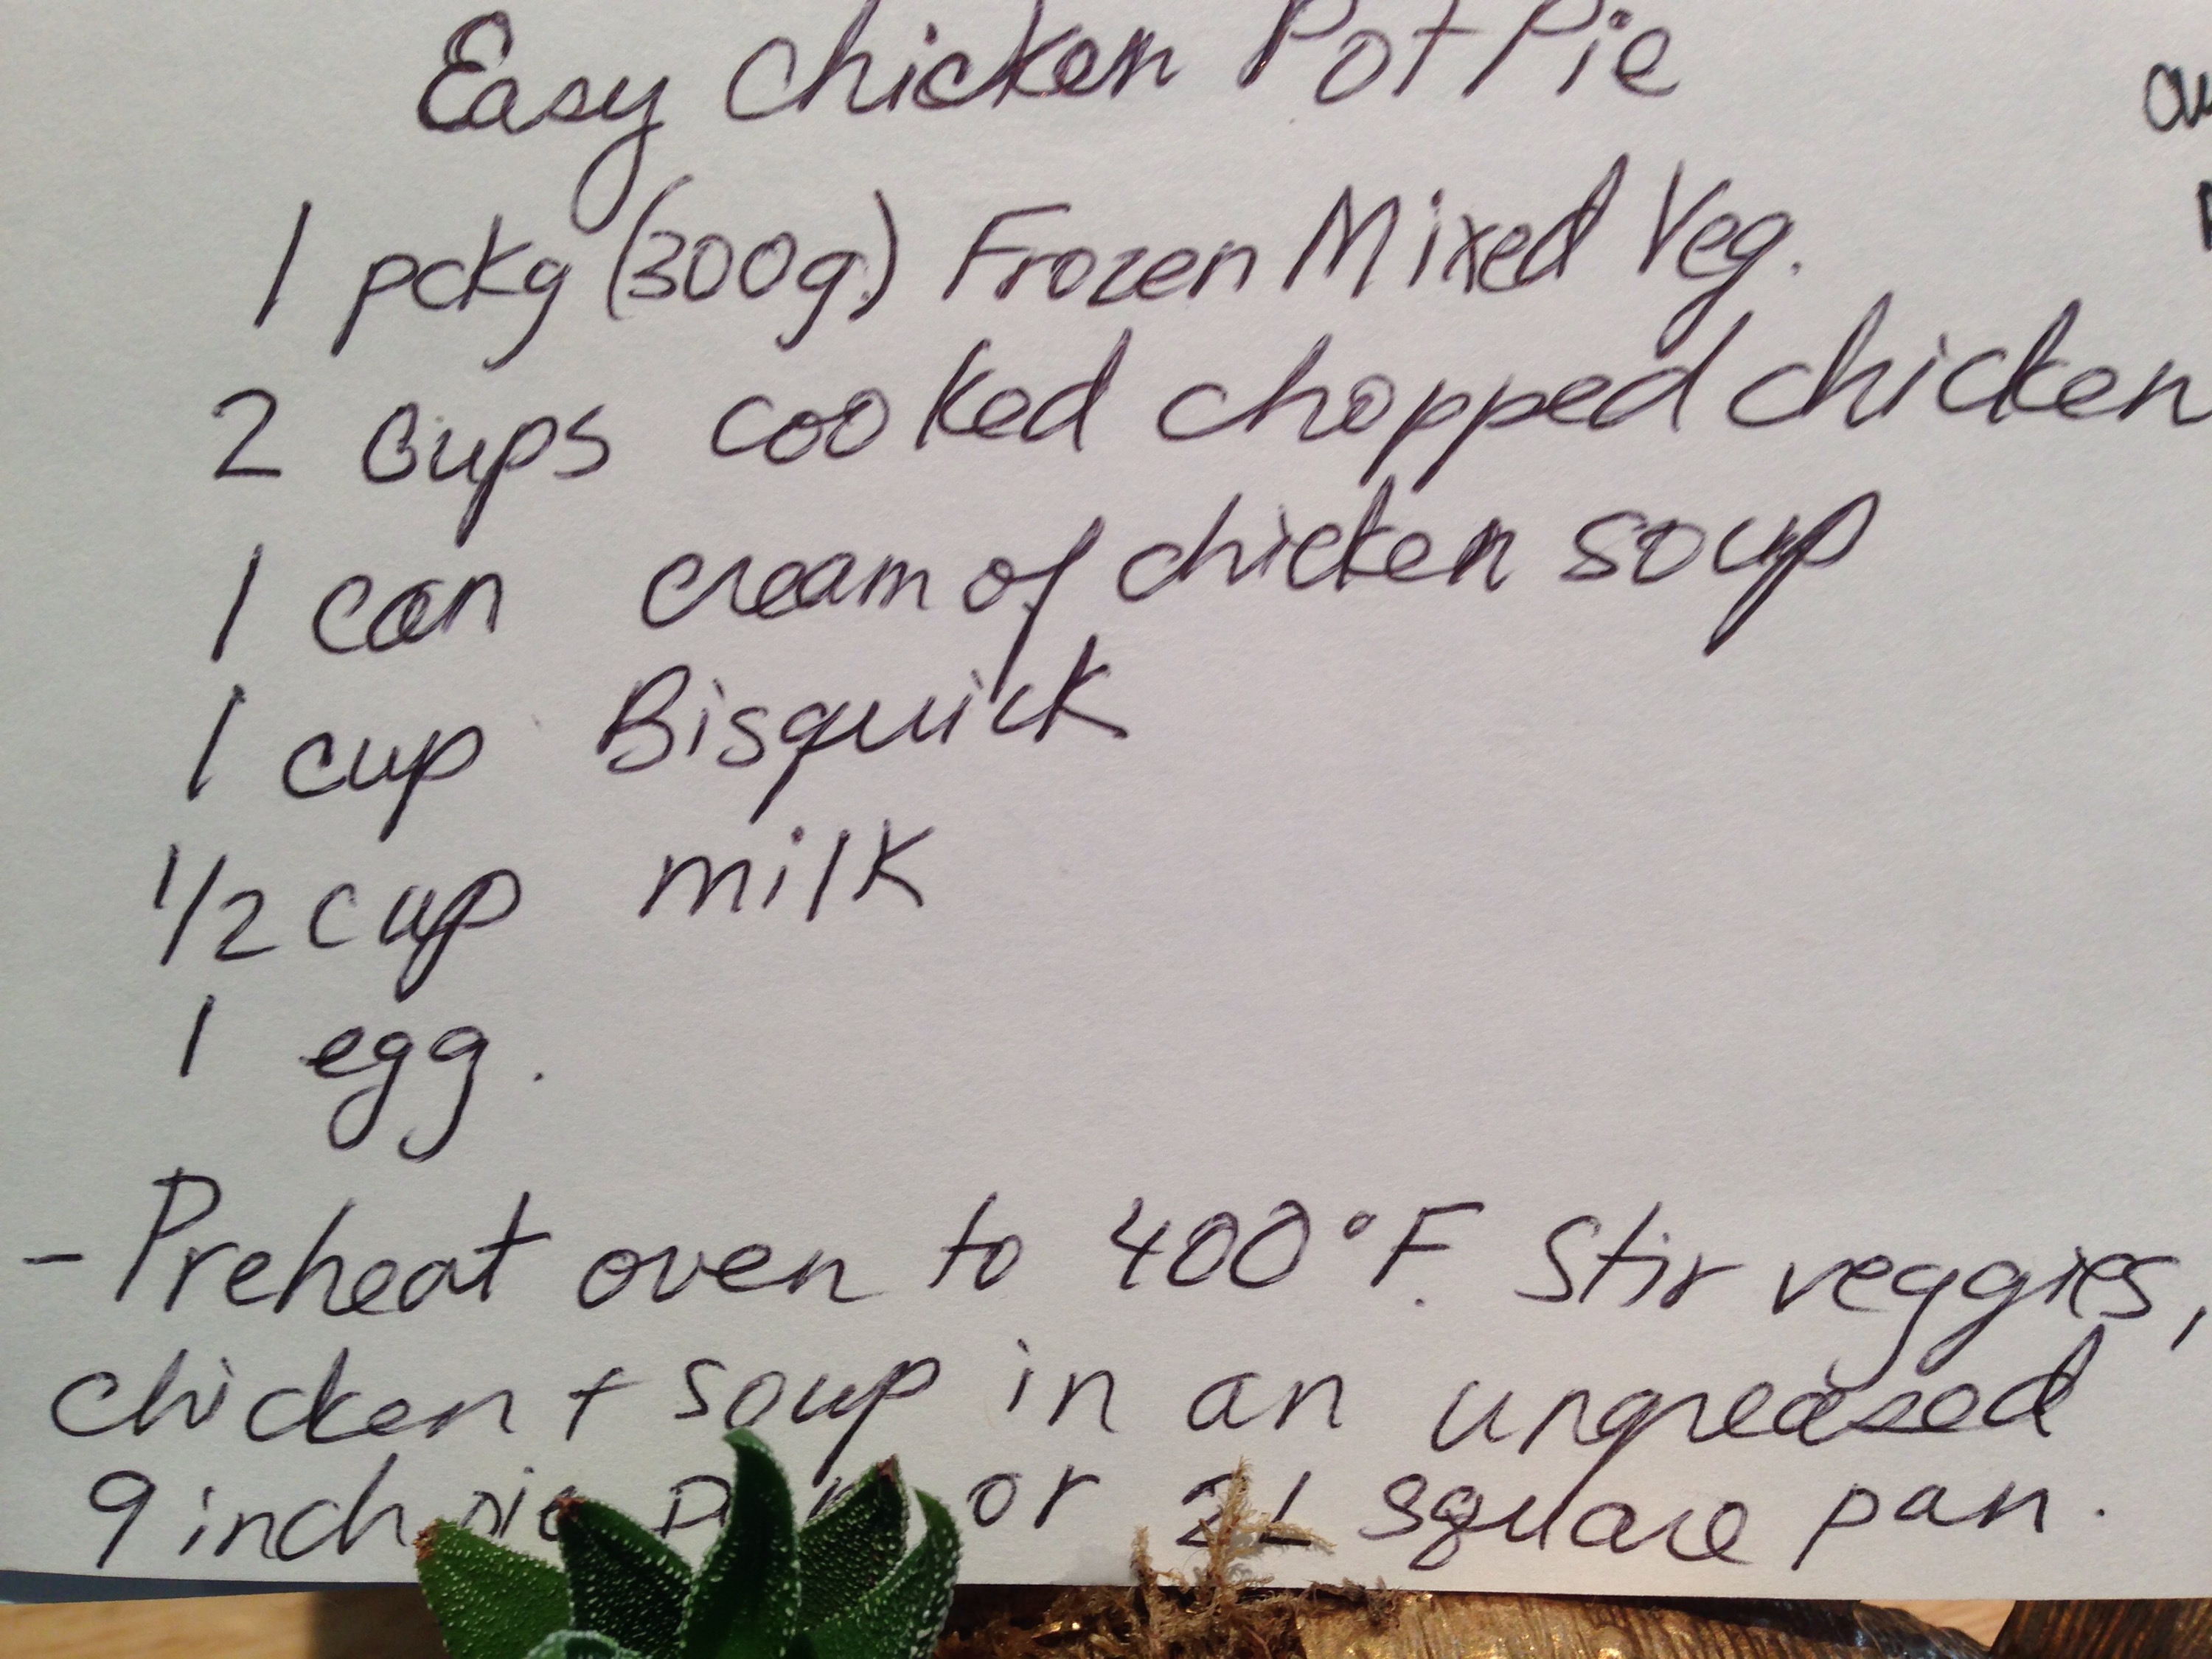 Easy Chicken Pot Pie
1 pckg (300g.) Frozen Mixed Veg.
2 cups cooked chopped chicken
1 can cream of chicken soup
1 cup Bisquick
1/2 cup milk
1 egg.
- Preheat oven to 400°F. Stir veggies,
chicken + soup in an ungreased
9 inch pie or 2L square pan.